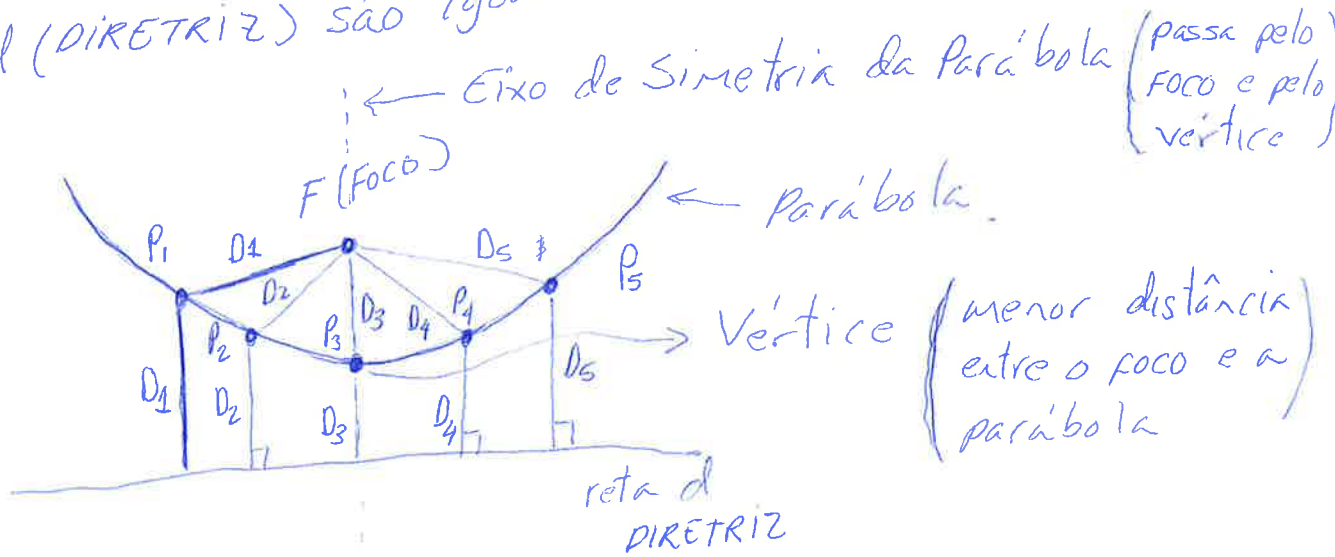 (DIRETRIZ) são
Eixo de Simetria da Parábola (passa pelo
foco e pelo
vértice)
F (FOCO)
Parábola.
P1 D1 D5 P5
D2 D3 D4 P4
P2 P3
Vértice (menor distância
entre o foco e a
parábola)
D1 D2 D3 D4 D5
reta d
DIRETRIZ